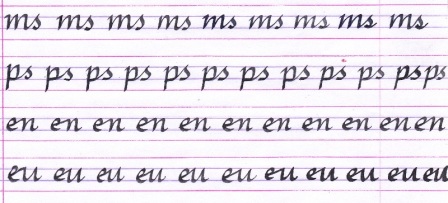 ms ms ms ms ms ms ms ms ms
ps ps ps ps ps ps ps ps ps ps ps ps
en en en en en en en en en en en
eu eu eu eu eu eu eu eu eu eu eu